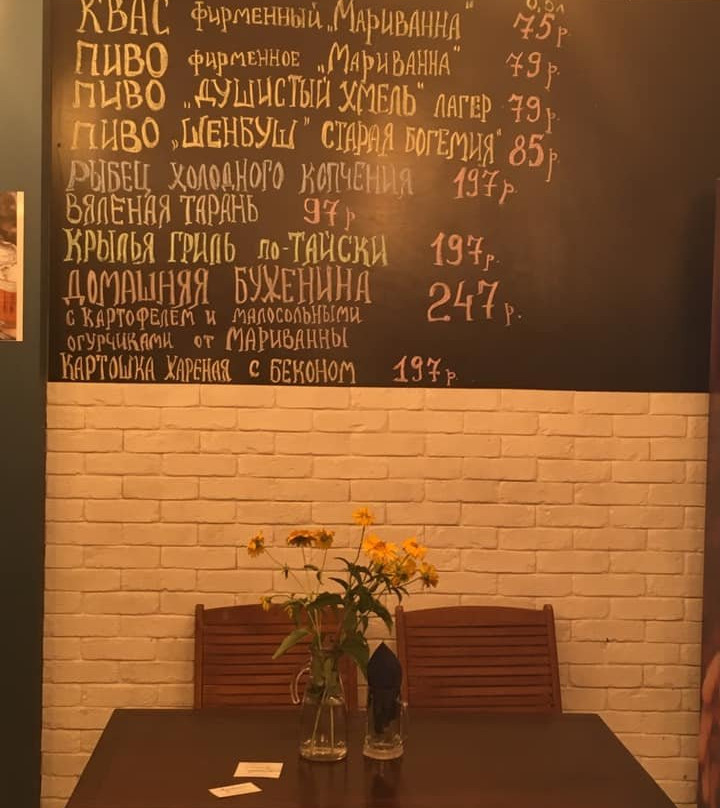 0,5л
КВАС фирменный „Мариванна" 75р
ПИВО фирменное „Мариванна" 79р.
ПИВО „ДУШИСТЫЙ ХМЕЛЬ" ЛАГЕР 79р.
ПИВО „ШЕНБУШ" СТАРАЯ БОГЕМИЯ" 85р
РЫБЕЦ ХОЛОДНОГО КОПЧЕНИЯ 197р.
ВЯЛЕНАЯ ТАРАНЬ 97р
КРЫЛЬЯ ГРИЛЬ по-ТАЙСКИ 197р.
ДОМАШНЯЯ БУЖЕНИНА 247р.
С КАРТОФЕЛЕМ И МАЛОСОЛЬНЫМИ
ОГУРЧИКАМИ ОТ МАРИВАННЫ
КАРТОШКА ЖАРЕНАЯ С БЕКОНОМ 197р.